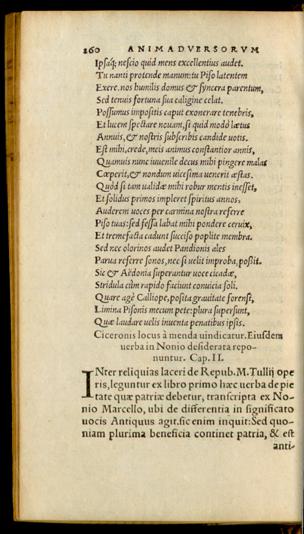 260 ANIMADVERSORVM
Ipsaq; nescio quid mens excellentius audet.
Tu nanti protende manum: tu Piso latentem
Exere. nos humilis domus & syncera parentum,
Sed tenuis fortuna sua caligine celat.
Possumus impositis caput exonerare tenebris,
Et lucem spectare nouam, si quid modò lætus
Annuis, & nostris subscribis candide uotis.
Est mihi, crede, meis animus constantior annis,
Quamuis nunc iuuenile decus mihi pingere malas
Cœperit, & nondum uicesima uenerit æstas.
Quòd si tam ualidæ mihi robur mentis inesset,
Et solidus primos impleret spiritus annos,
Auderem uoces per carmina nostra referre
Piso tuas: sed fessa labat mihi pondere ceruix,
Et tremefacta cadunt succiso poplite membra.
Sed nec olorinos audet Pandionis ales
Parua referre sonos, nec si uelit improba, possit.
Sic & Aëdonia superantur uoce cicadæ,
Stridula cùm rapido faciunt conuicia soli.
Quare agè Calliope, posita grauitate forensi,
Limina Pisonis mecum pete: plura supersunt,
Quæ laudare uelis inuenta penatibus ipsis.
Ciceronis locus à menda uindicatur. Eiusdem
uerba in Nonio desiderata repo-
nuntur. Cap. II.
INter reliquias laceri de Repub. M. Tullij ope
ris, leguntur ex libro primo hæc uerba de pie
tate quæ patriæ debetur, transcripta ex No-
nio Marcello, ubi de differentia in significato
uocis Antiquus agit. sic enim inquit: Sed quo-
niam plurima beneficia continet patria, & est
anti-